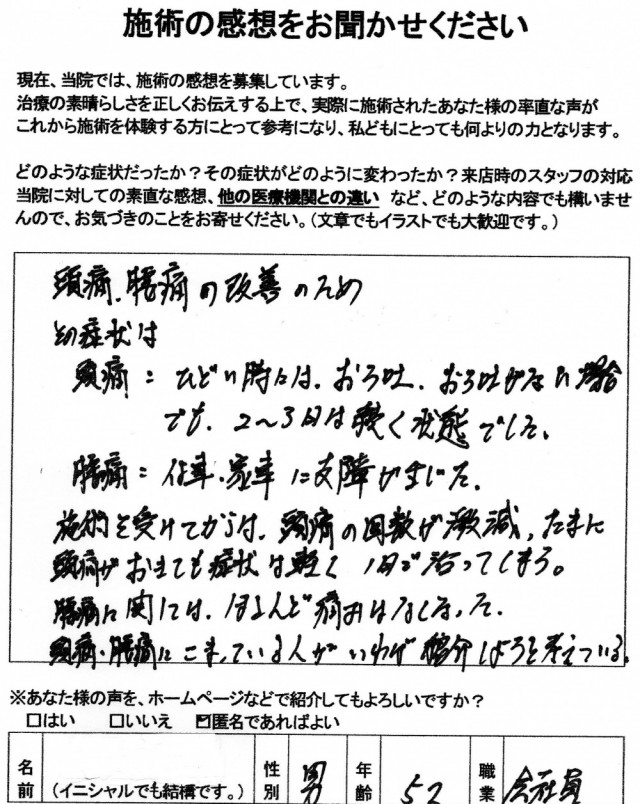 施術の感想をお聞かせください
現在、当院では、施術の感想を募集しています。
治療の素晴らしさを正しくお伝えする上で、実際に施術されたあなた様の率直な声が
これから施術を体験する方にとって参考になり、私どもにとっても何よりの力となります。
どのような症状だったか？その症状がどのように変わったか？来店時のスタッフの対応
当院に対しての素直な感想、他の医療機関との違い など、どのような内容でも構いませ
んので、お気づきのことをお寄せください。（文章でもイラストでも大歓迎です。）
頭痛、腰痛の改善のため
症状は
頭痛：ひどい時には、おう吐、おう吐がない場合
でも、2〜3日は続く状態でした。
腰痛：仕事・家事に支障がでました。
施術を受けてからは、頭痛の回数が激減、たまに
頭痛がおきても症状は軽く 1日で治ってしまう。
腰痛に関しては、ほとんど痛みはなくなった。
頭痛・腰痛にこまっている人がいれば紹介しようと考えている。
※あなた様の声を、ホームページなどで紹介してもよろしいですか？
□はい □いいえ ☑匿名であればよい
名前 （イニシャルでも結構です。） 性別 男 年齢 52 職業 会社員